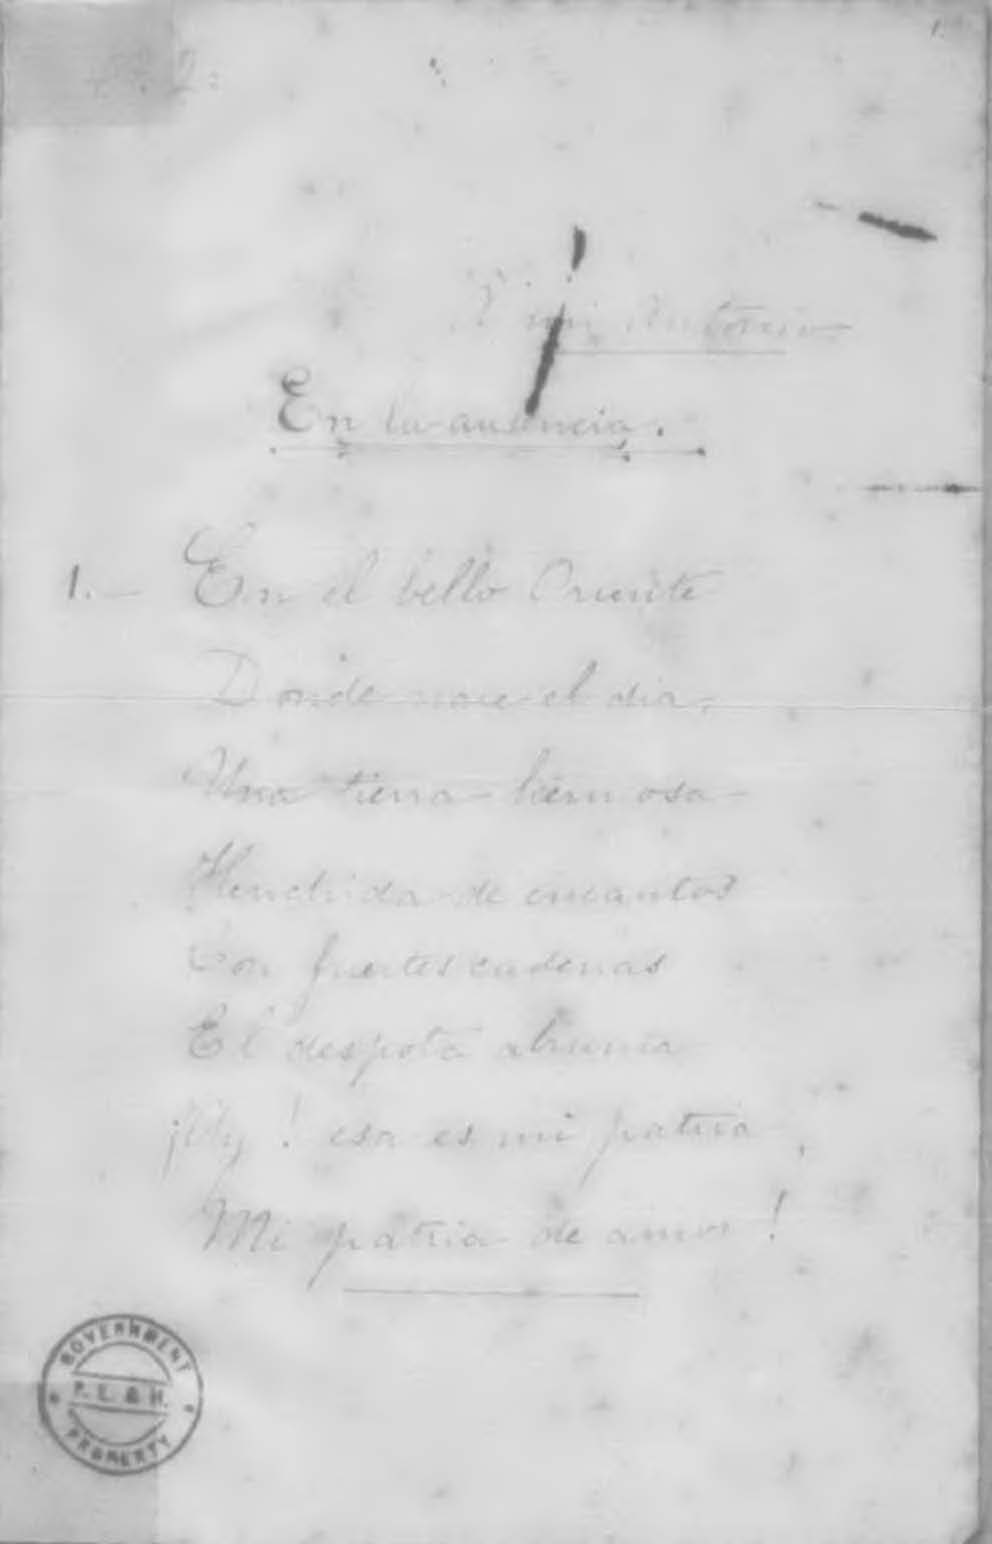 1.
2:
A mi Antonio
En la ausencia.
1. — En el bello Oriente
Donde nace el dia,
Una tierra hermosa
Henchida de encantos
Con fuertes cadenas
El despota abruma
¡Ay! esa es mi patria,
Mi patria de amor!
GOVERNMENT
P. L. & H.
PROPERTY